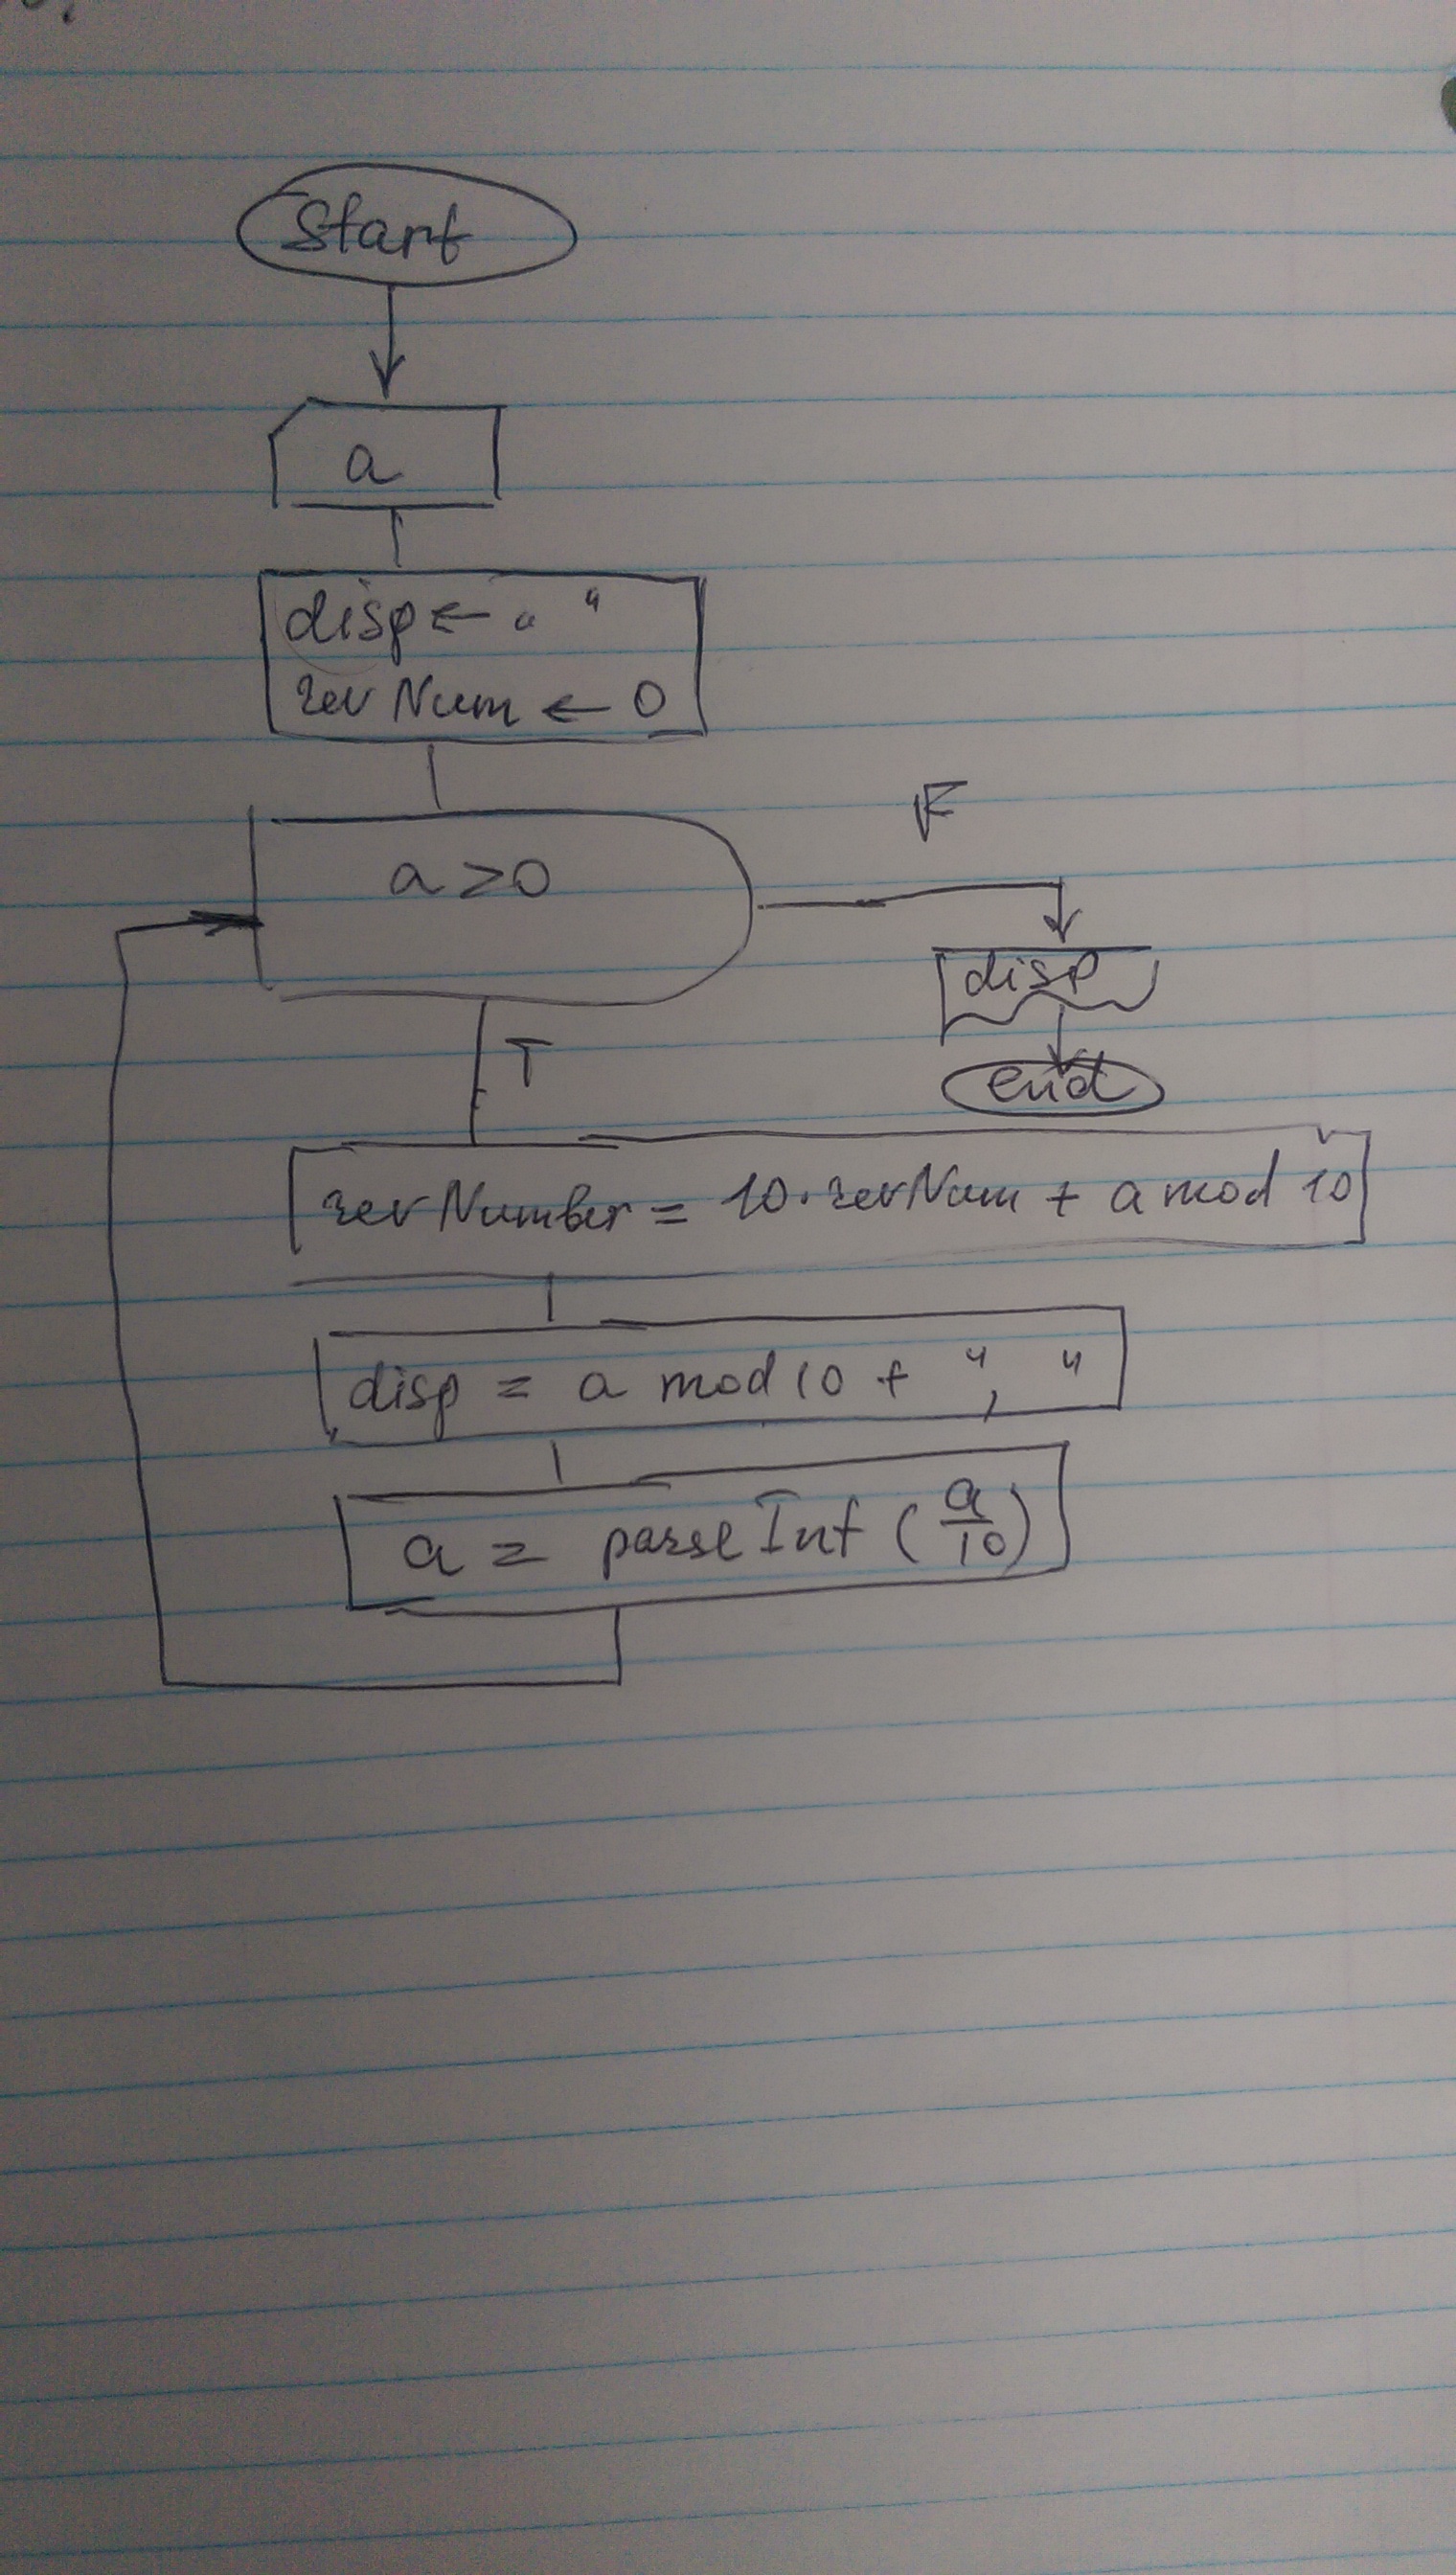 Start
a
disp ← " "
revNum ← 0
a > 0
F
disp
end
T
revNumber = 10 · revNum + a mod 10
disp = a mod 10 + ", "
a = parseInt (a/10)